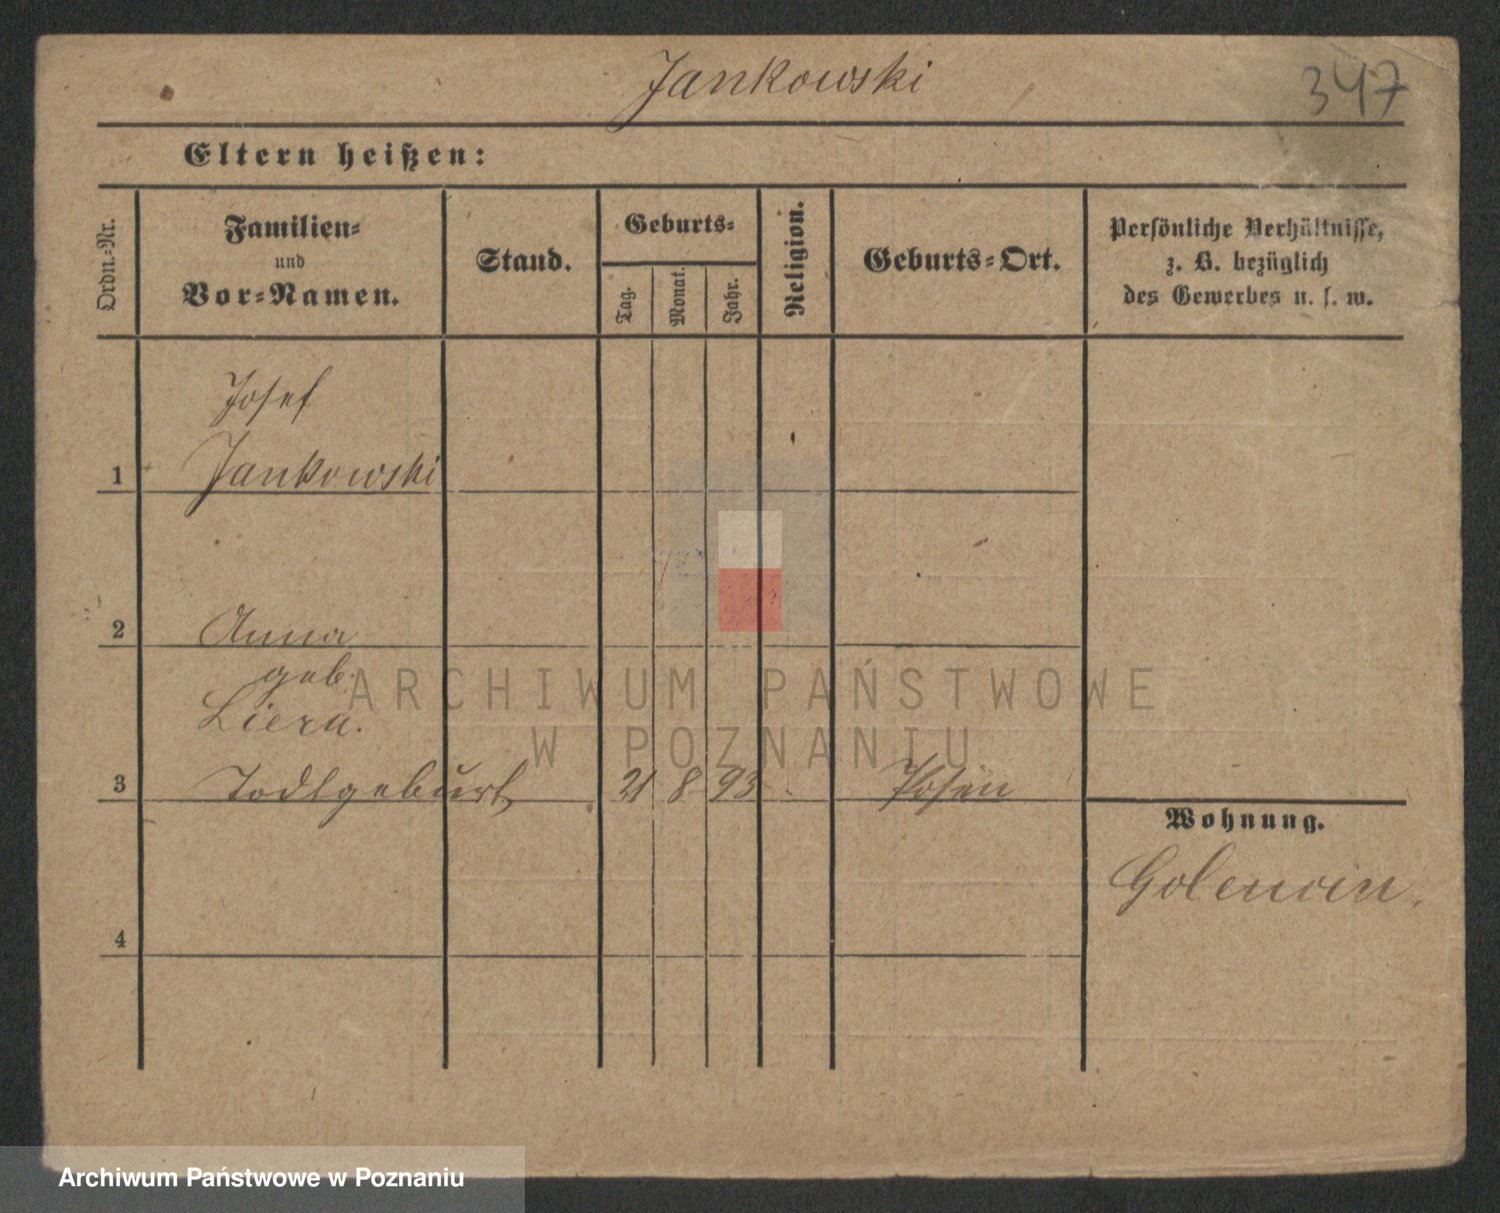 Jankowski
347
Eltern heißen:
Ordn.-Nr.
Familien-
und
Vor-Namen.
Stand.
Geburts-
Tag.
Monat.
Jahr.
Religion.
Geburts-Ort.
Persönliche Verhältnisse,
z. B. bezüglich
des Gewerbes u. s. w.
Josef
1 Jankowski
2 Anna
geb.
Liera.
3 Todtgeburt 21 8 93 Posen
Wohnung.
Golencin.
4
ARCHIWUM PAŃSTWOWE
W POZNANIU
Archiwum Państwowe w Poznaniu